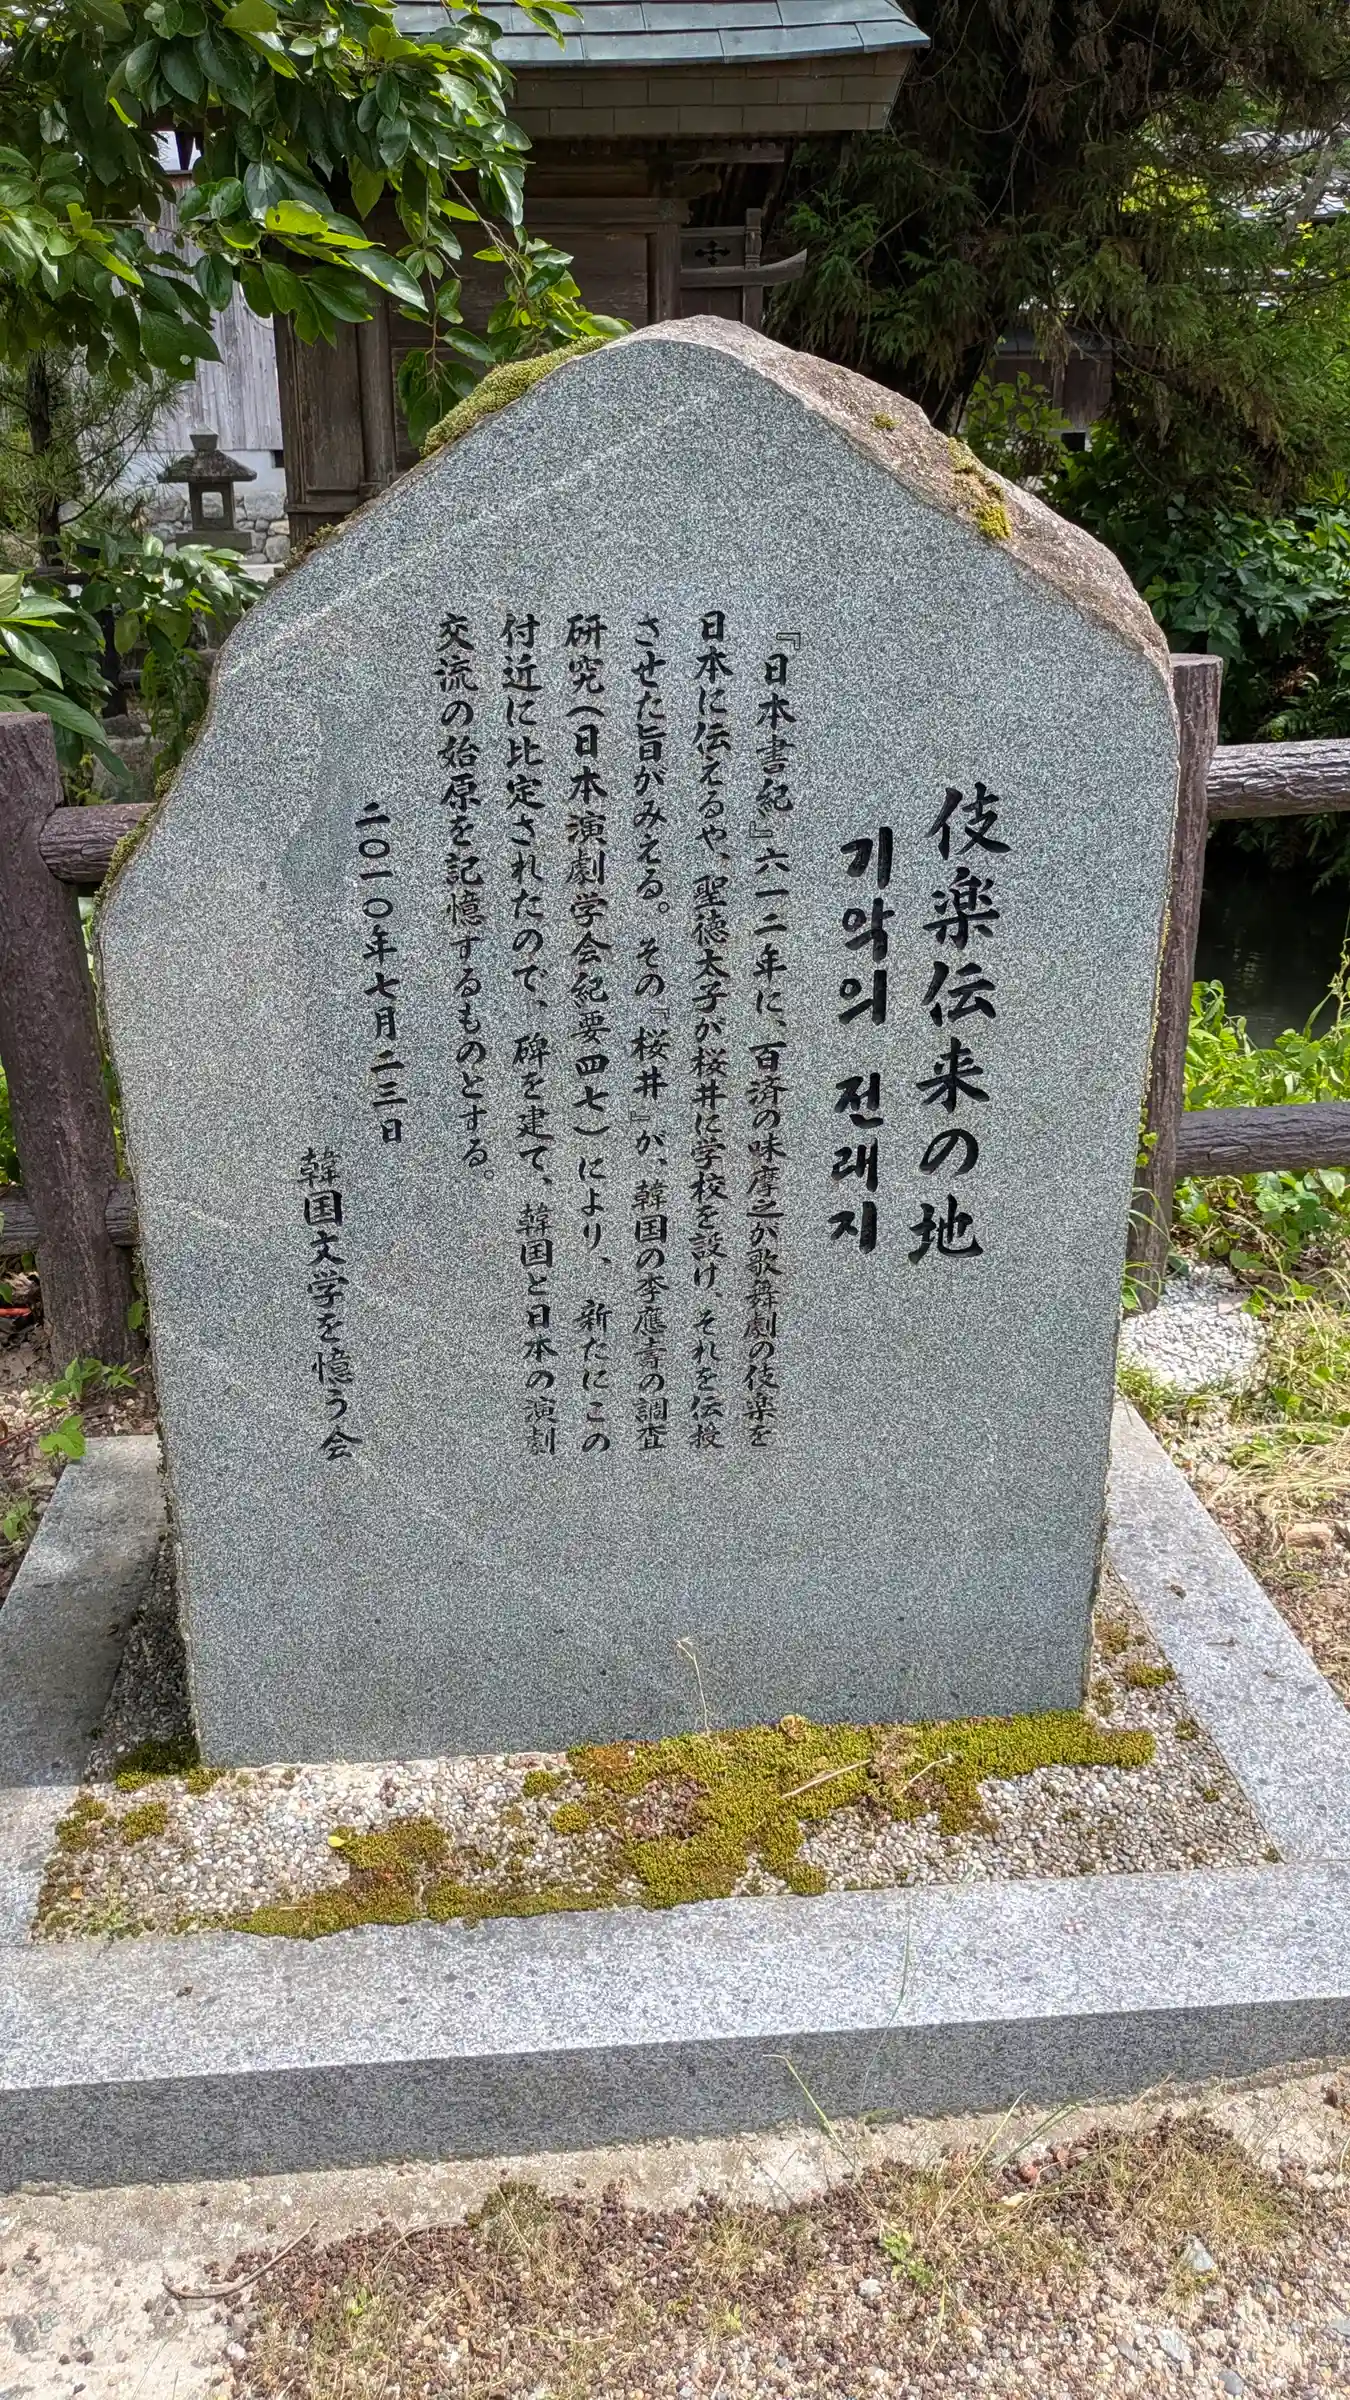 伎楽伝来の地
기악의 전래지
『日本書紀』六一二年に、百済の味摩之が歌舞劇の伎楽を
日本に伝えるや、聖徳太子が桜井に学校を設け、それを伝授
させた旨がみえる。その『桜井』が、韓国の李應寿の調査
研究(日本演劇学会紀要四七)により、新たにこの
付近に比定されたので、碑を建て、韓国と日本の演劇
交流の始原を記憶するものとする。
二〇一〇年七月二三日
韓国文学を憶う会